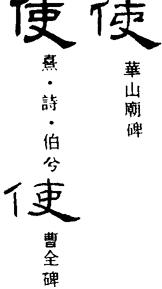 使
華山廟碑
使
熹·詩·伯兮
使
曹全碑